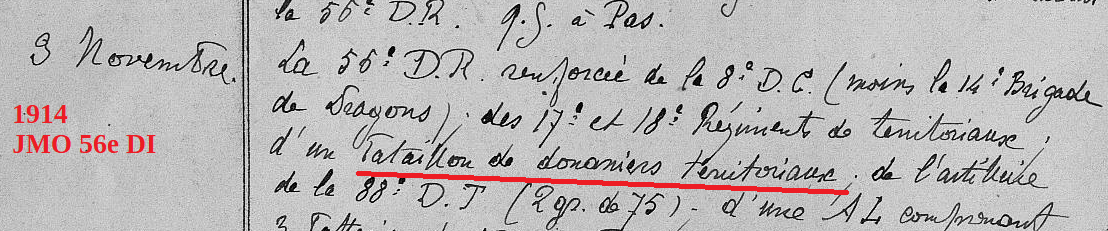 la 56e D.R. Q.G. à Pas.
3 Novembre.
La 56e D.R. renforcée de la 8e D.C. (moins la 14e Brigade
de Dragons); des 17e et 18e Régiments de territoriaux;
d'un Bataillon de douaniers territoriaux; de l'artillerie
de la 88e D.T (2 gr. de 75); d'une A L comprenant
1914
JMO 56e DI